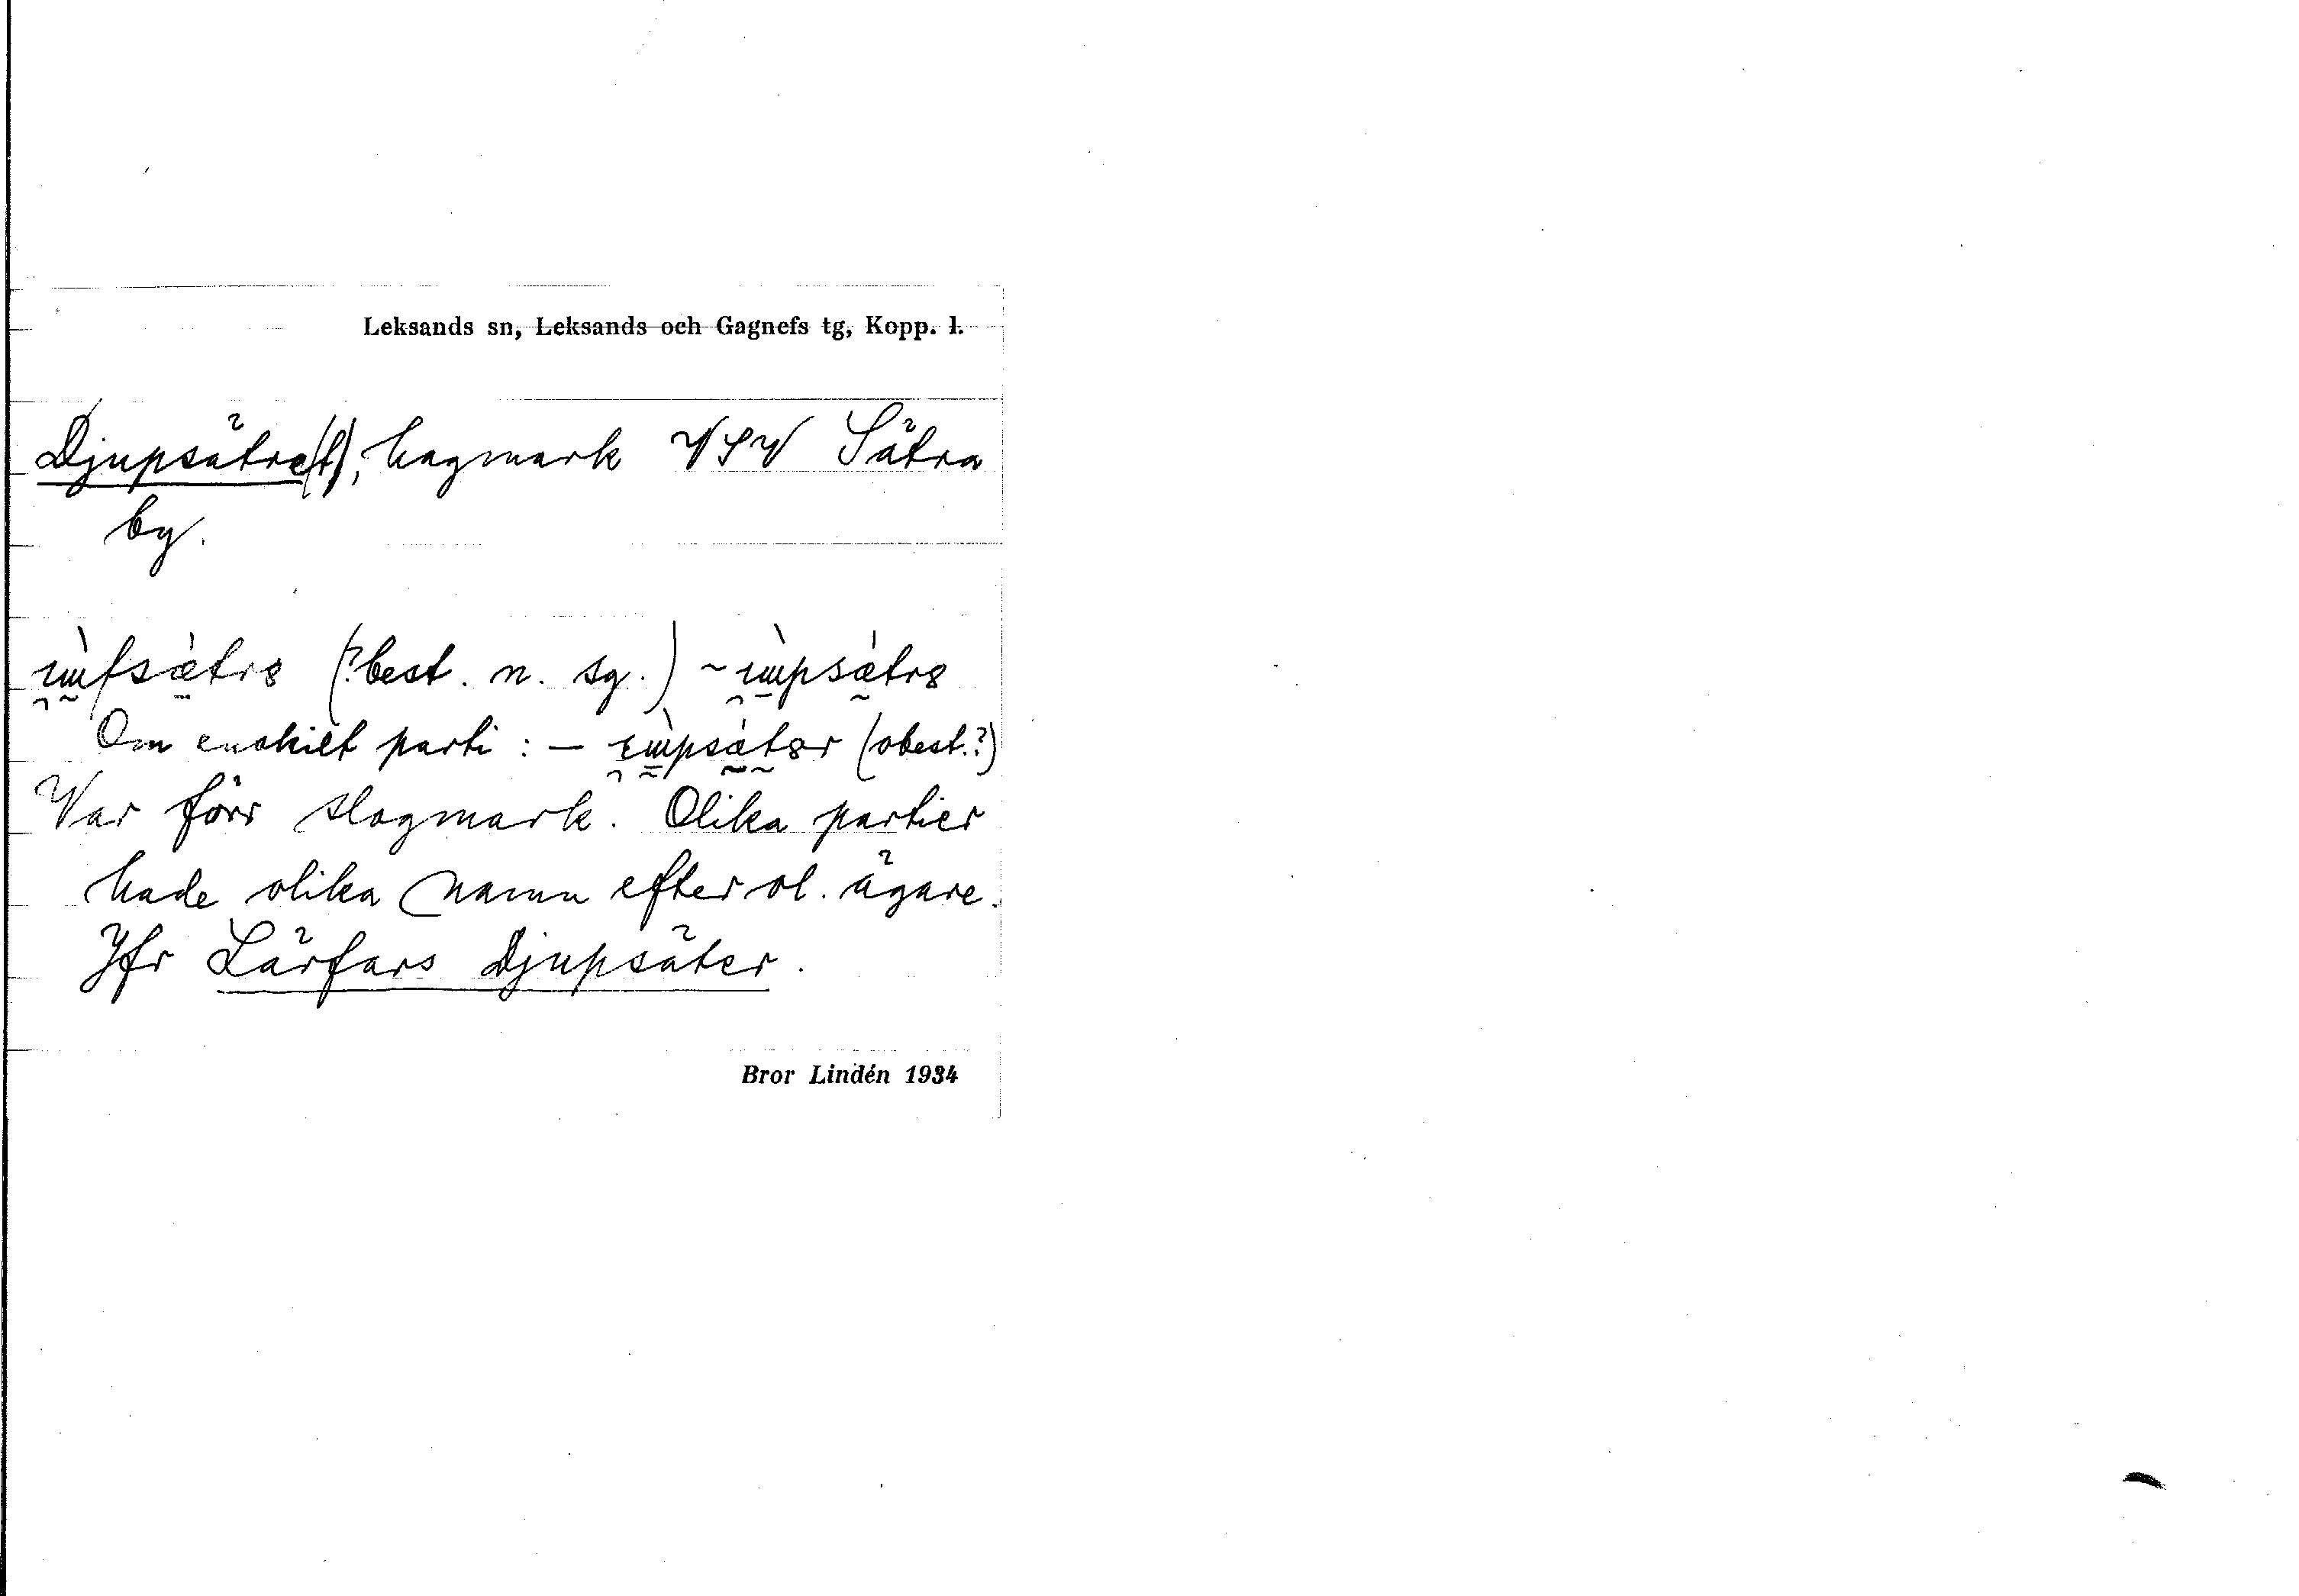 Leksands sn, Leksands och Gagnefs tg, Kopp. l.
Djupsätre(t), hagmark VSV Sätra
by.
(?best. n. sg.) ~
Om enskilt parti : — (obest.?)
Var förr slogmark. Olika partier
hade olika namn efter ol. ägare.
Jfr Lärfars Djupsäter.
Bror Lindén 1934